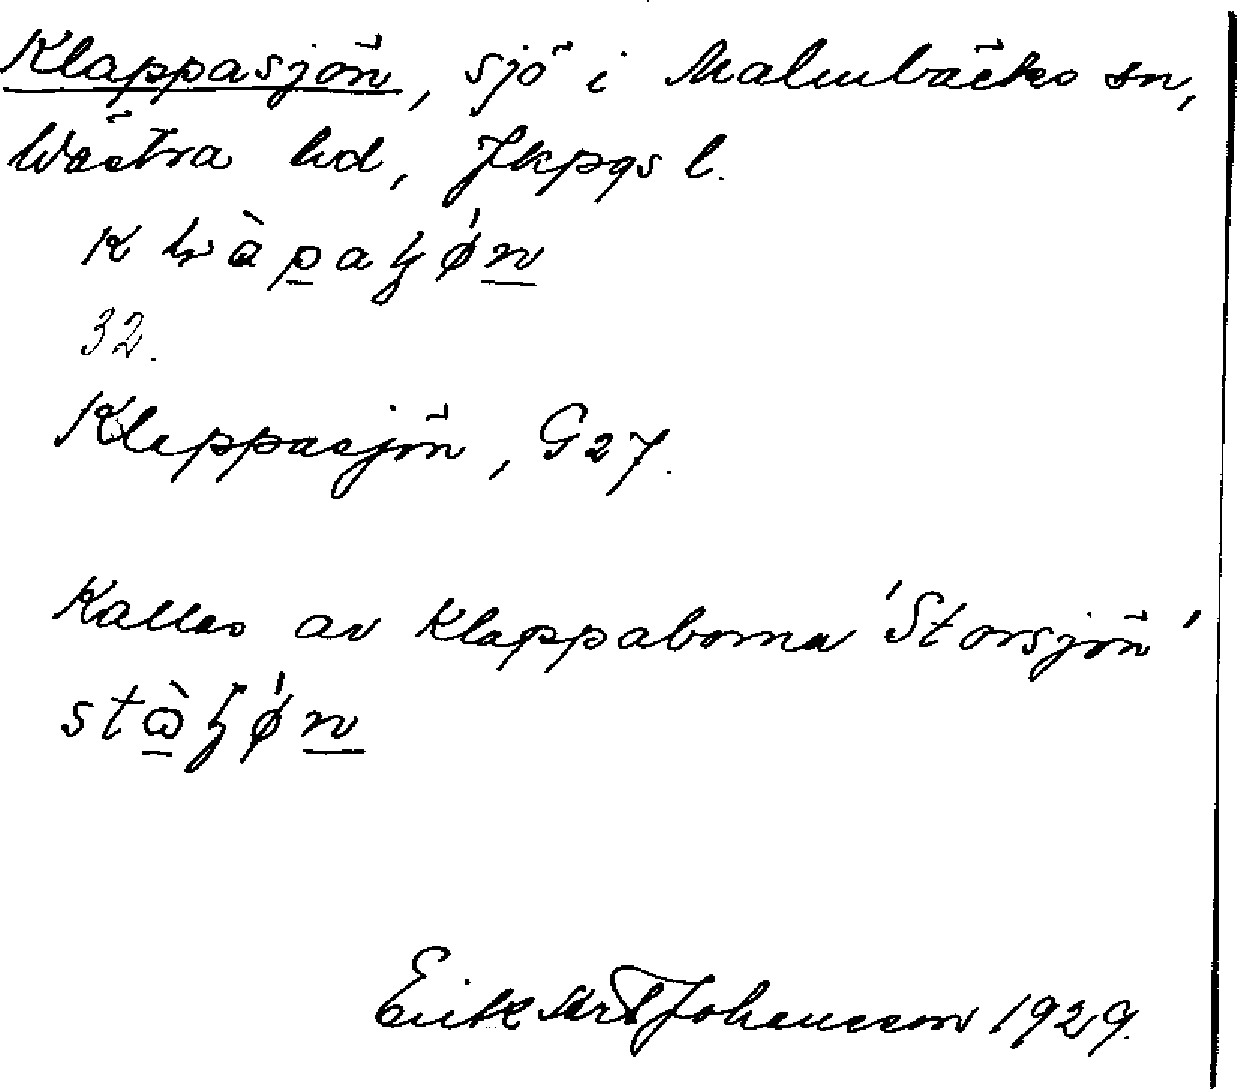 Klappasjön, sjö i Malmbäcks sn,
Västra hd, Jkpgs l.
32.
Klappasjön, G27.
Kallas av Klappaborna 'Storsjön'
Erik Johansson 1929.